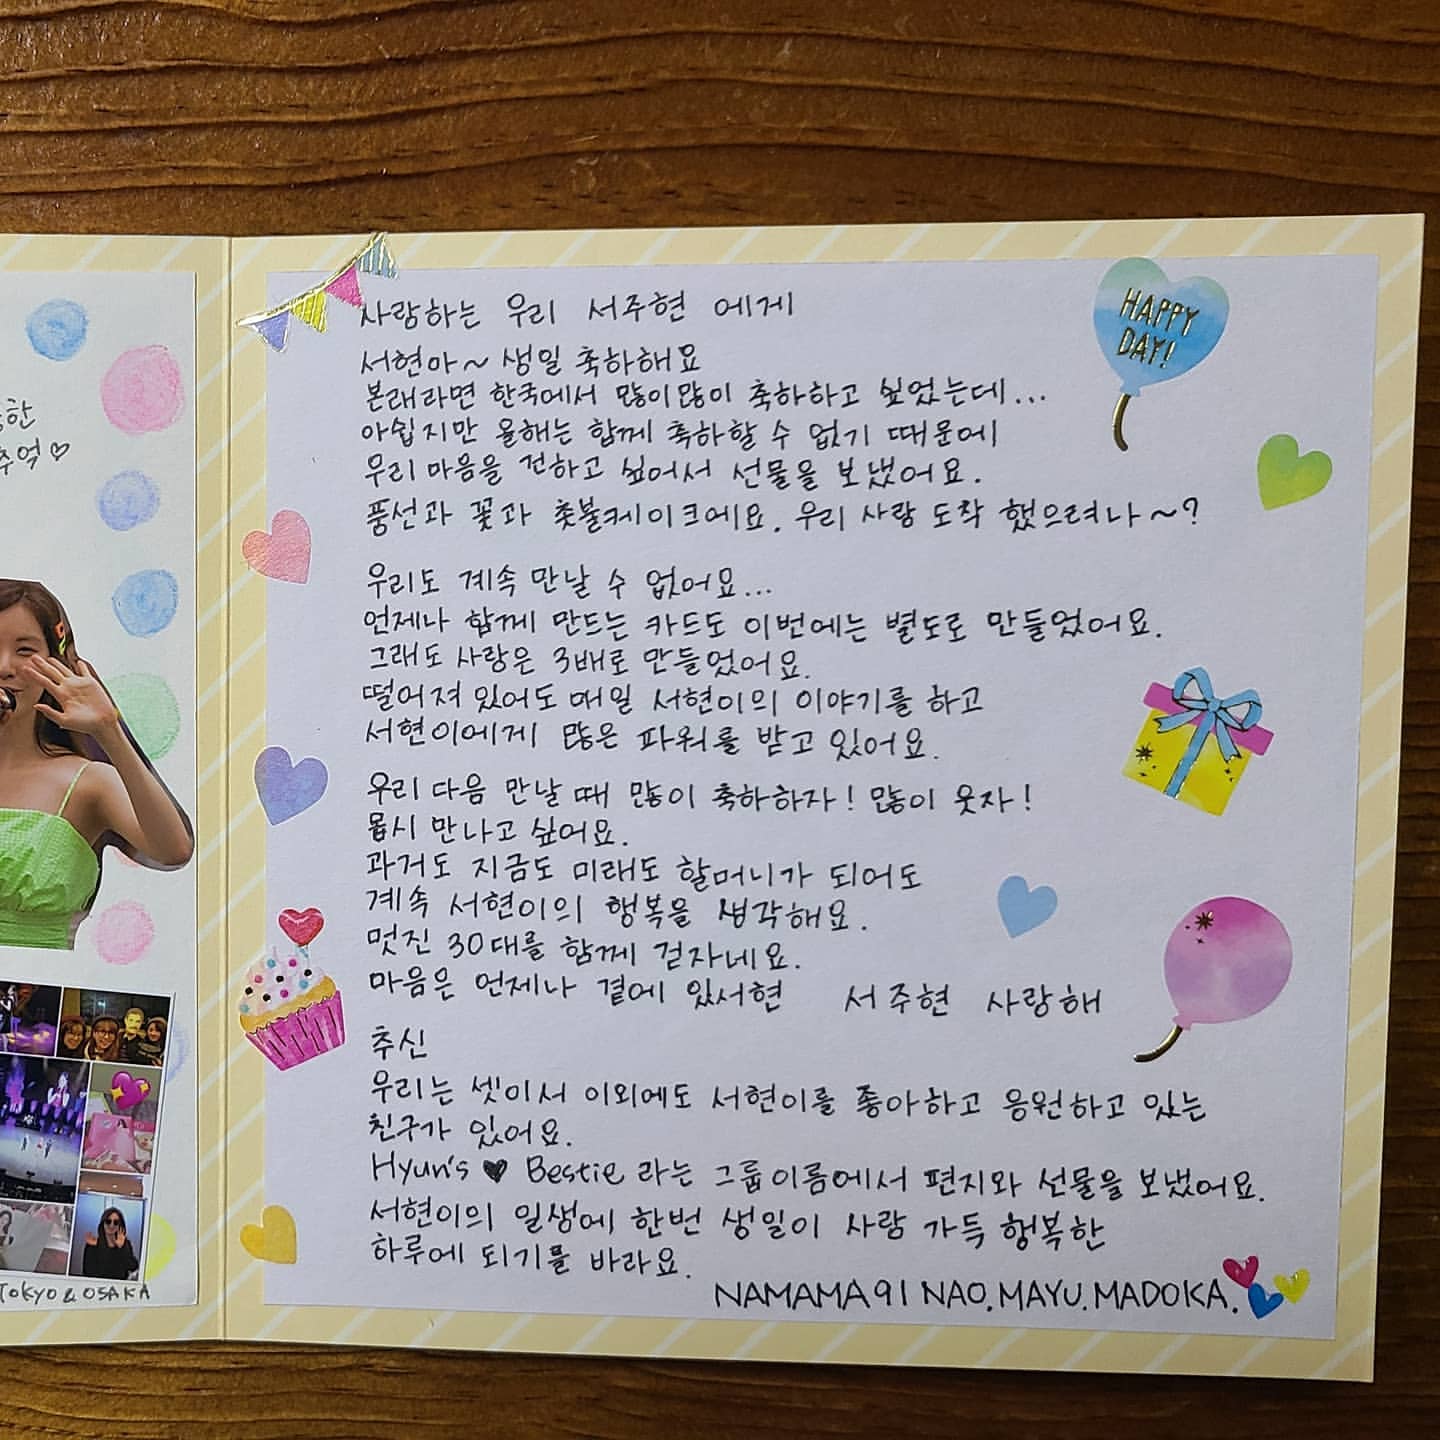 한
추억♡
TOKYO & OSAKA
사랑하는 우리 서주현 에게
서현아~ 생일 축하해요
본래라면 한국에서 많이많이 축하하고 싶었는데...
아쉽지만 올해는 함께 축하할 수 없기 때문에
우리 마음을 전하고 싶어서 선물을 보냈어요.
풍선과 꽃과 촛불케이크에요. 우리 사랑 도착 했으려나~?
우리도 계속 만날 수 없어요...
언제나 함께 만드는 카드도 이번에는 별도로 만들었어요.
그래도 사랑은 3배로 만들었어요.
떨어져 있어도 매일 서현이의 이야기를 하고
서현이에게 많은 파워를 받고 있어요.
우리 다음 만날 때 많이 축하하자! 많이 웃자!
몹시 만나고 싶어요.
과거도 지금도 미래도 할머니가 되어도
계속 서현이의 행복을 생각해요.
멋진 30대를 함께 걷자네요.
마음은 언제나 곁에 있서현 서주현 사랑해
추신
우리는 셋이서 이외에도 서현이를 좋아하고 응원하고 있는
친구가 있어요.
Hyun's ♥ Bestie 라는 그룹이름에서 편지와 선물을 보냈어요.
서현이의 일생에 한번 생일이 사랑 가득 행복한
하루에 되기를 바라요.
NAMAMA91 NAO.MAYU.MADOKA.
HAPPY
DAY!